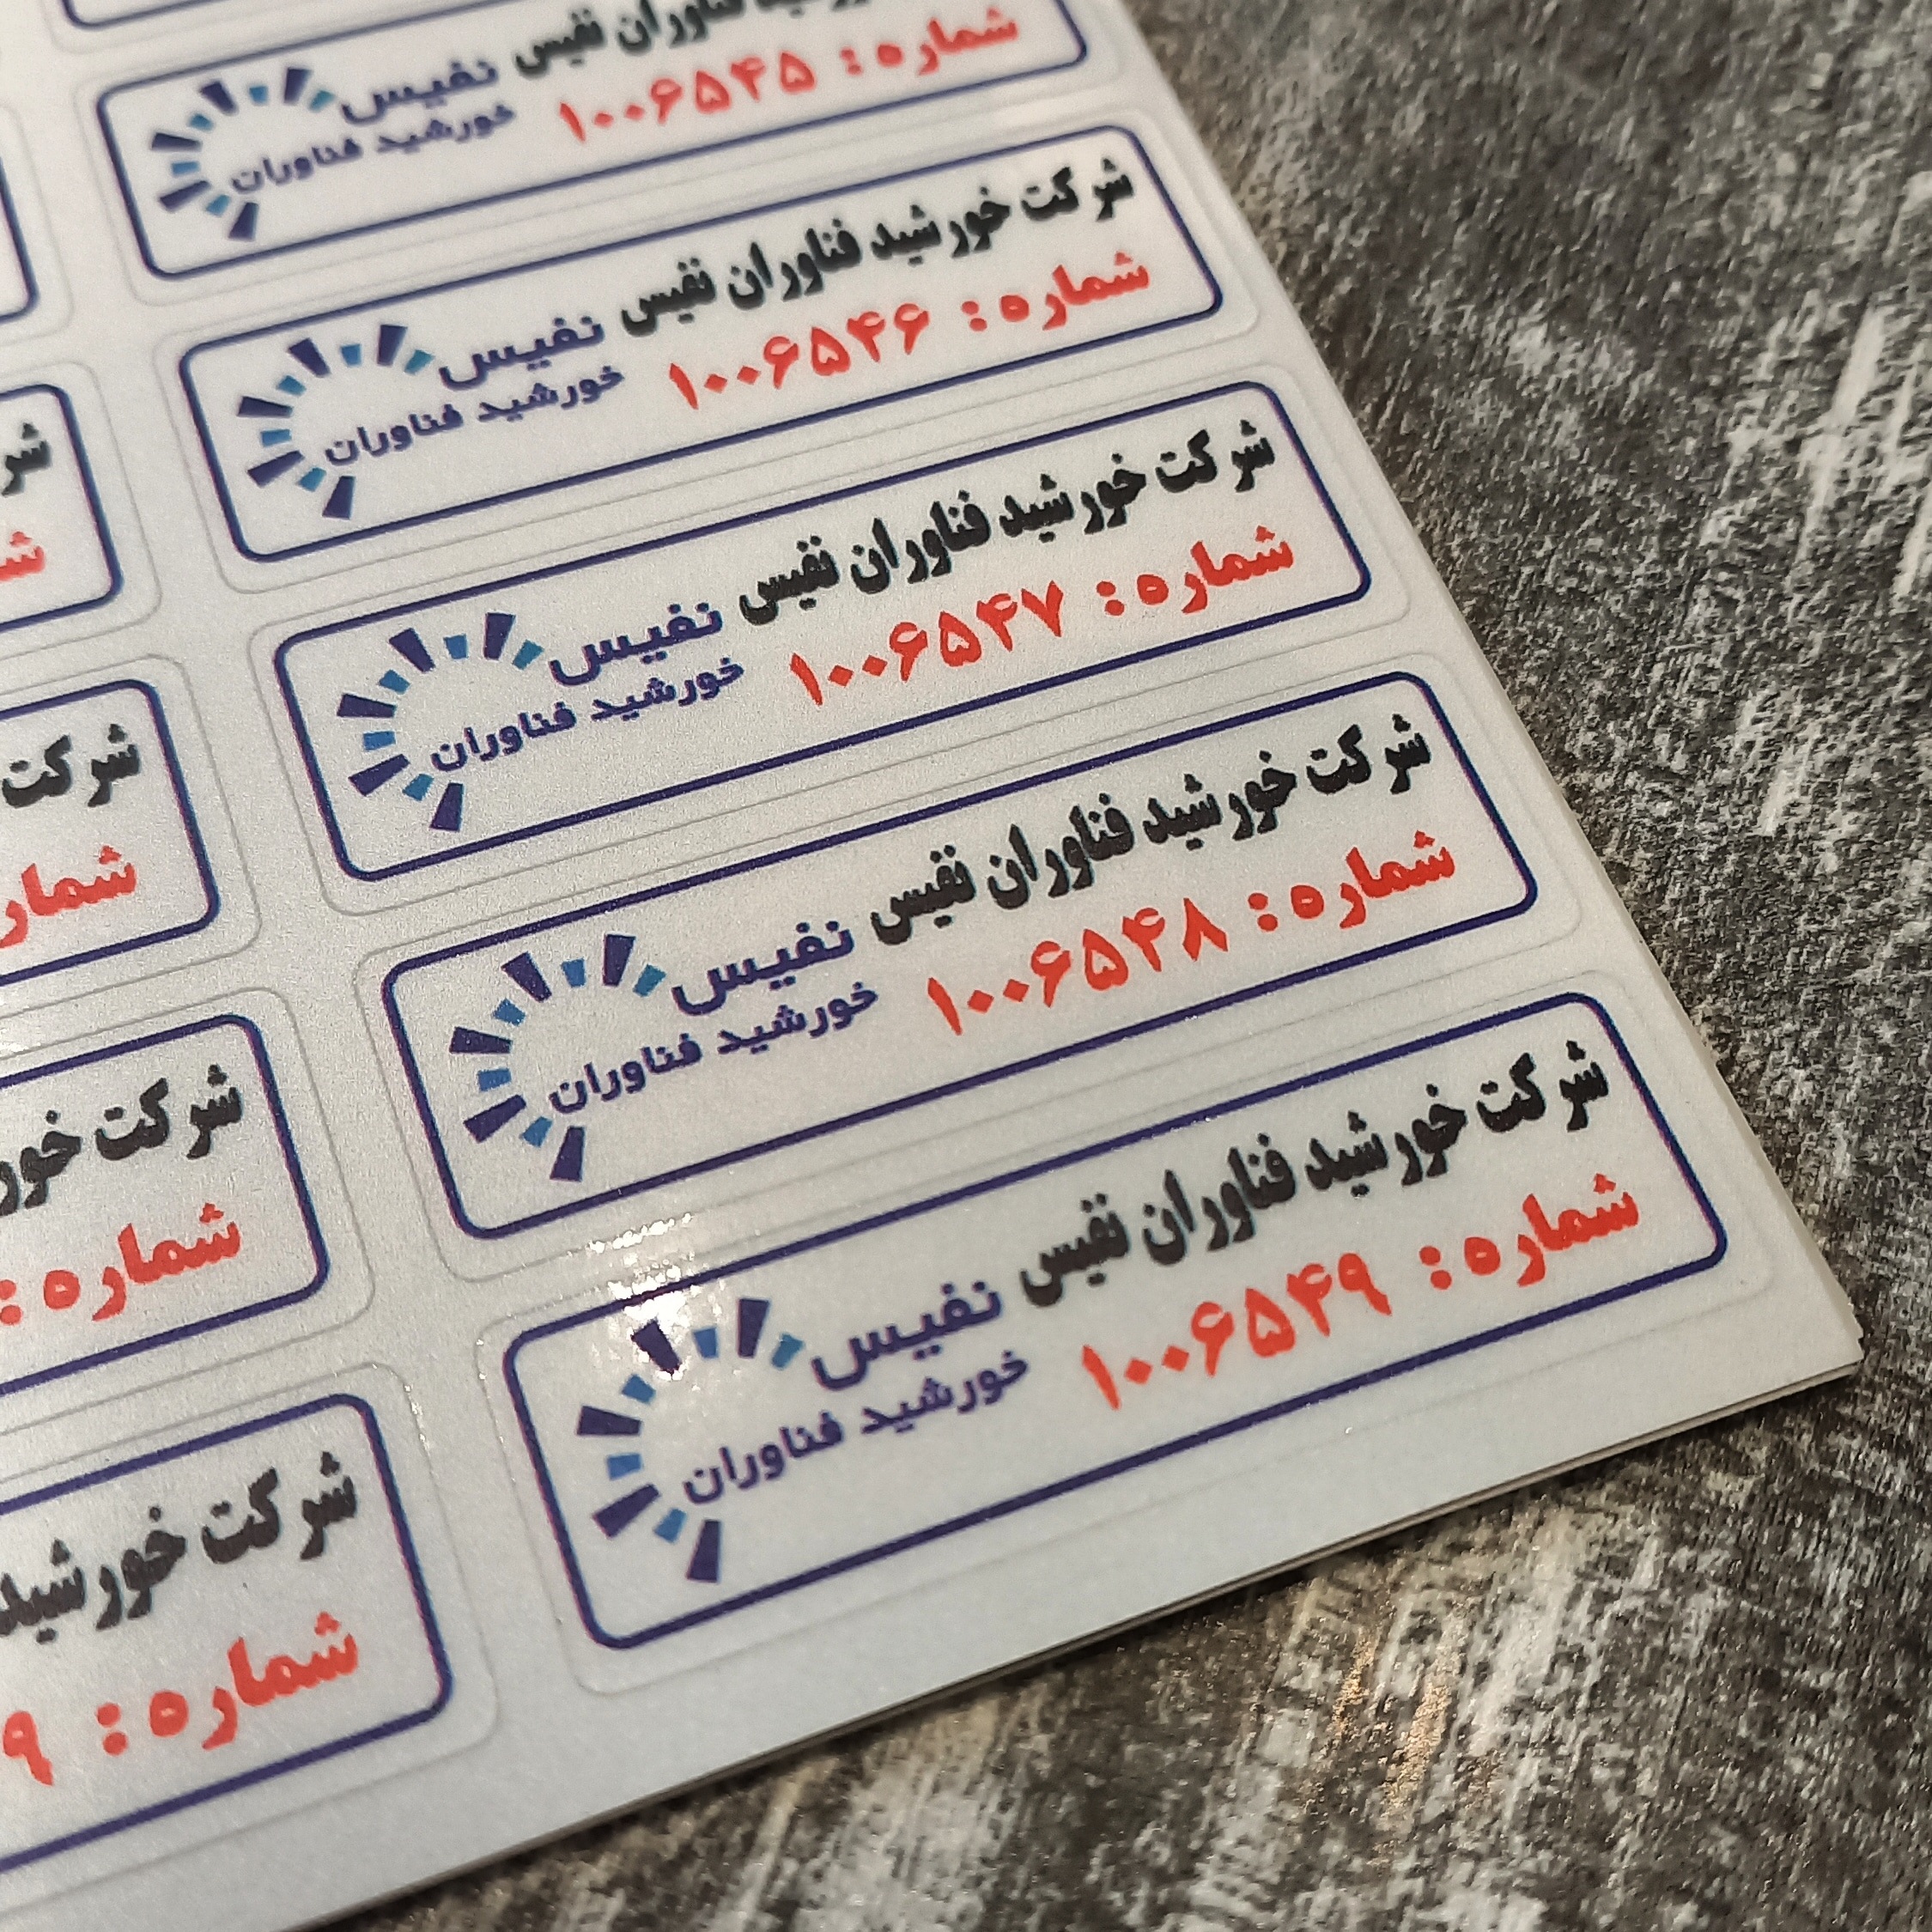 شرکت خورشید فناوران نفیس
شماره: ۱۰۰۶۵۴۵
نفیس
خورشید فناوران
شرکت خورشید فناوران نفیس
شماره: ۱۰۰۶۵۴۶
نفیس
خورشید فناوران
شرکت خورشید فناوران نفیس
شماره: ۱۰۰۶۵۴۷
نفیس
خورشید فناوران
شرکت خورشید فناوران نفیس
شماره: ۱۰۰۶۵۴۸
نفیس
خورشید فناوران
شرکت خورشید فناوران نفیس
شماره: ۱۰۰۶۵۴۹
نفیس
خورشید فناوران
شرکت
شرکت
شماره:
شرکت خورشید
شماره: ۹